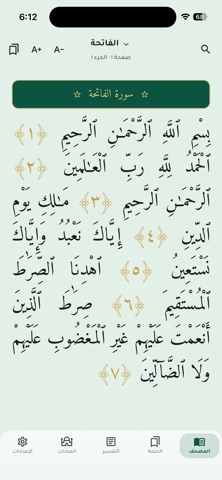 6:12
68
الفاتحة
صفحة ١ - الجزء ١
A+ A−
سورة الفاتحة
بِسْمِ ٱللَّهِ ٱلرَّحْمَـٰنِ ٱلرَّحِيمِ ﴿١﴾
ٱلْحَمْدُ لِلَّهِ رَبِّ ٱلْعَـٰلَمِينَ ﴿٢﴾
ٱلرَّحْمَـٰنِ ٱلرَّحِيمِ ﴿٣﴾ مَـٰلِكِ يَوْمِ
ٱلدِّينِ ﴿٤﴾ إِيَّاكَ نَعْبُدُ وَإِيَّاكَ
نَسْتَعِينُ ﴿٥﴾ ٱهْدِنَا ٱلصِّرَٰطَ
ٱلْمُسْتَقِيمَ ﴿٦﴾ صِرَٰطَ ٱلَّذِينَ
أَنْعَمْتَ عَلَيْهِمْ غَيْرِ ٱلْمَغْضُوبِ عَلَيْهِمْ
وَلَا ٱلضَّآلِّينَ ﴿٧﴾
المصحف الختمة التفسير العبادات الإعدادات